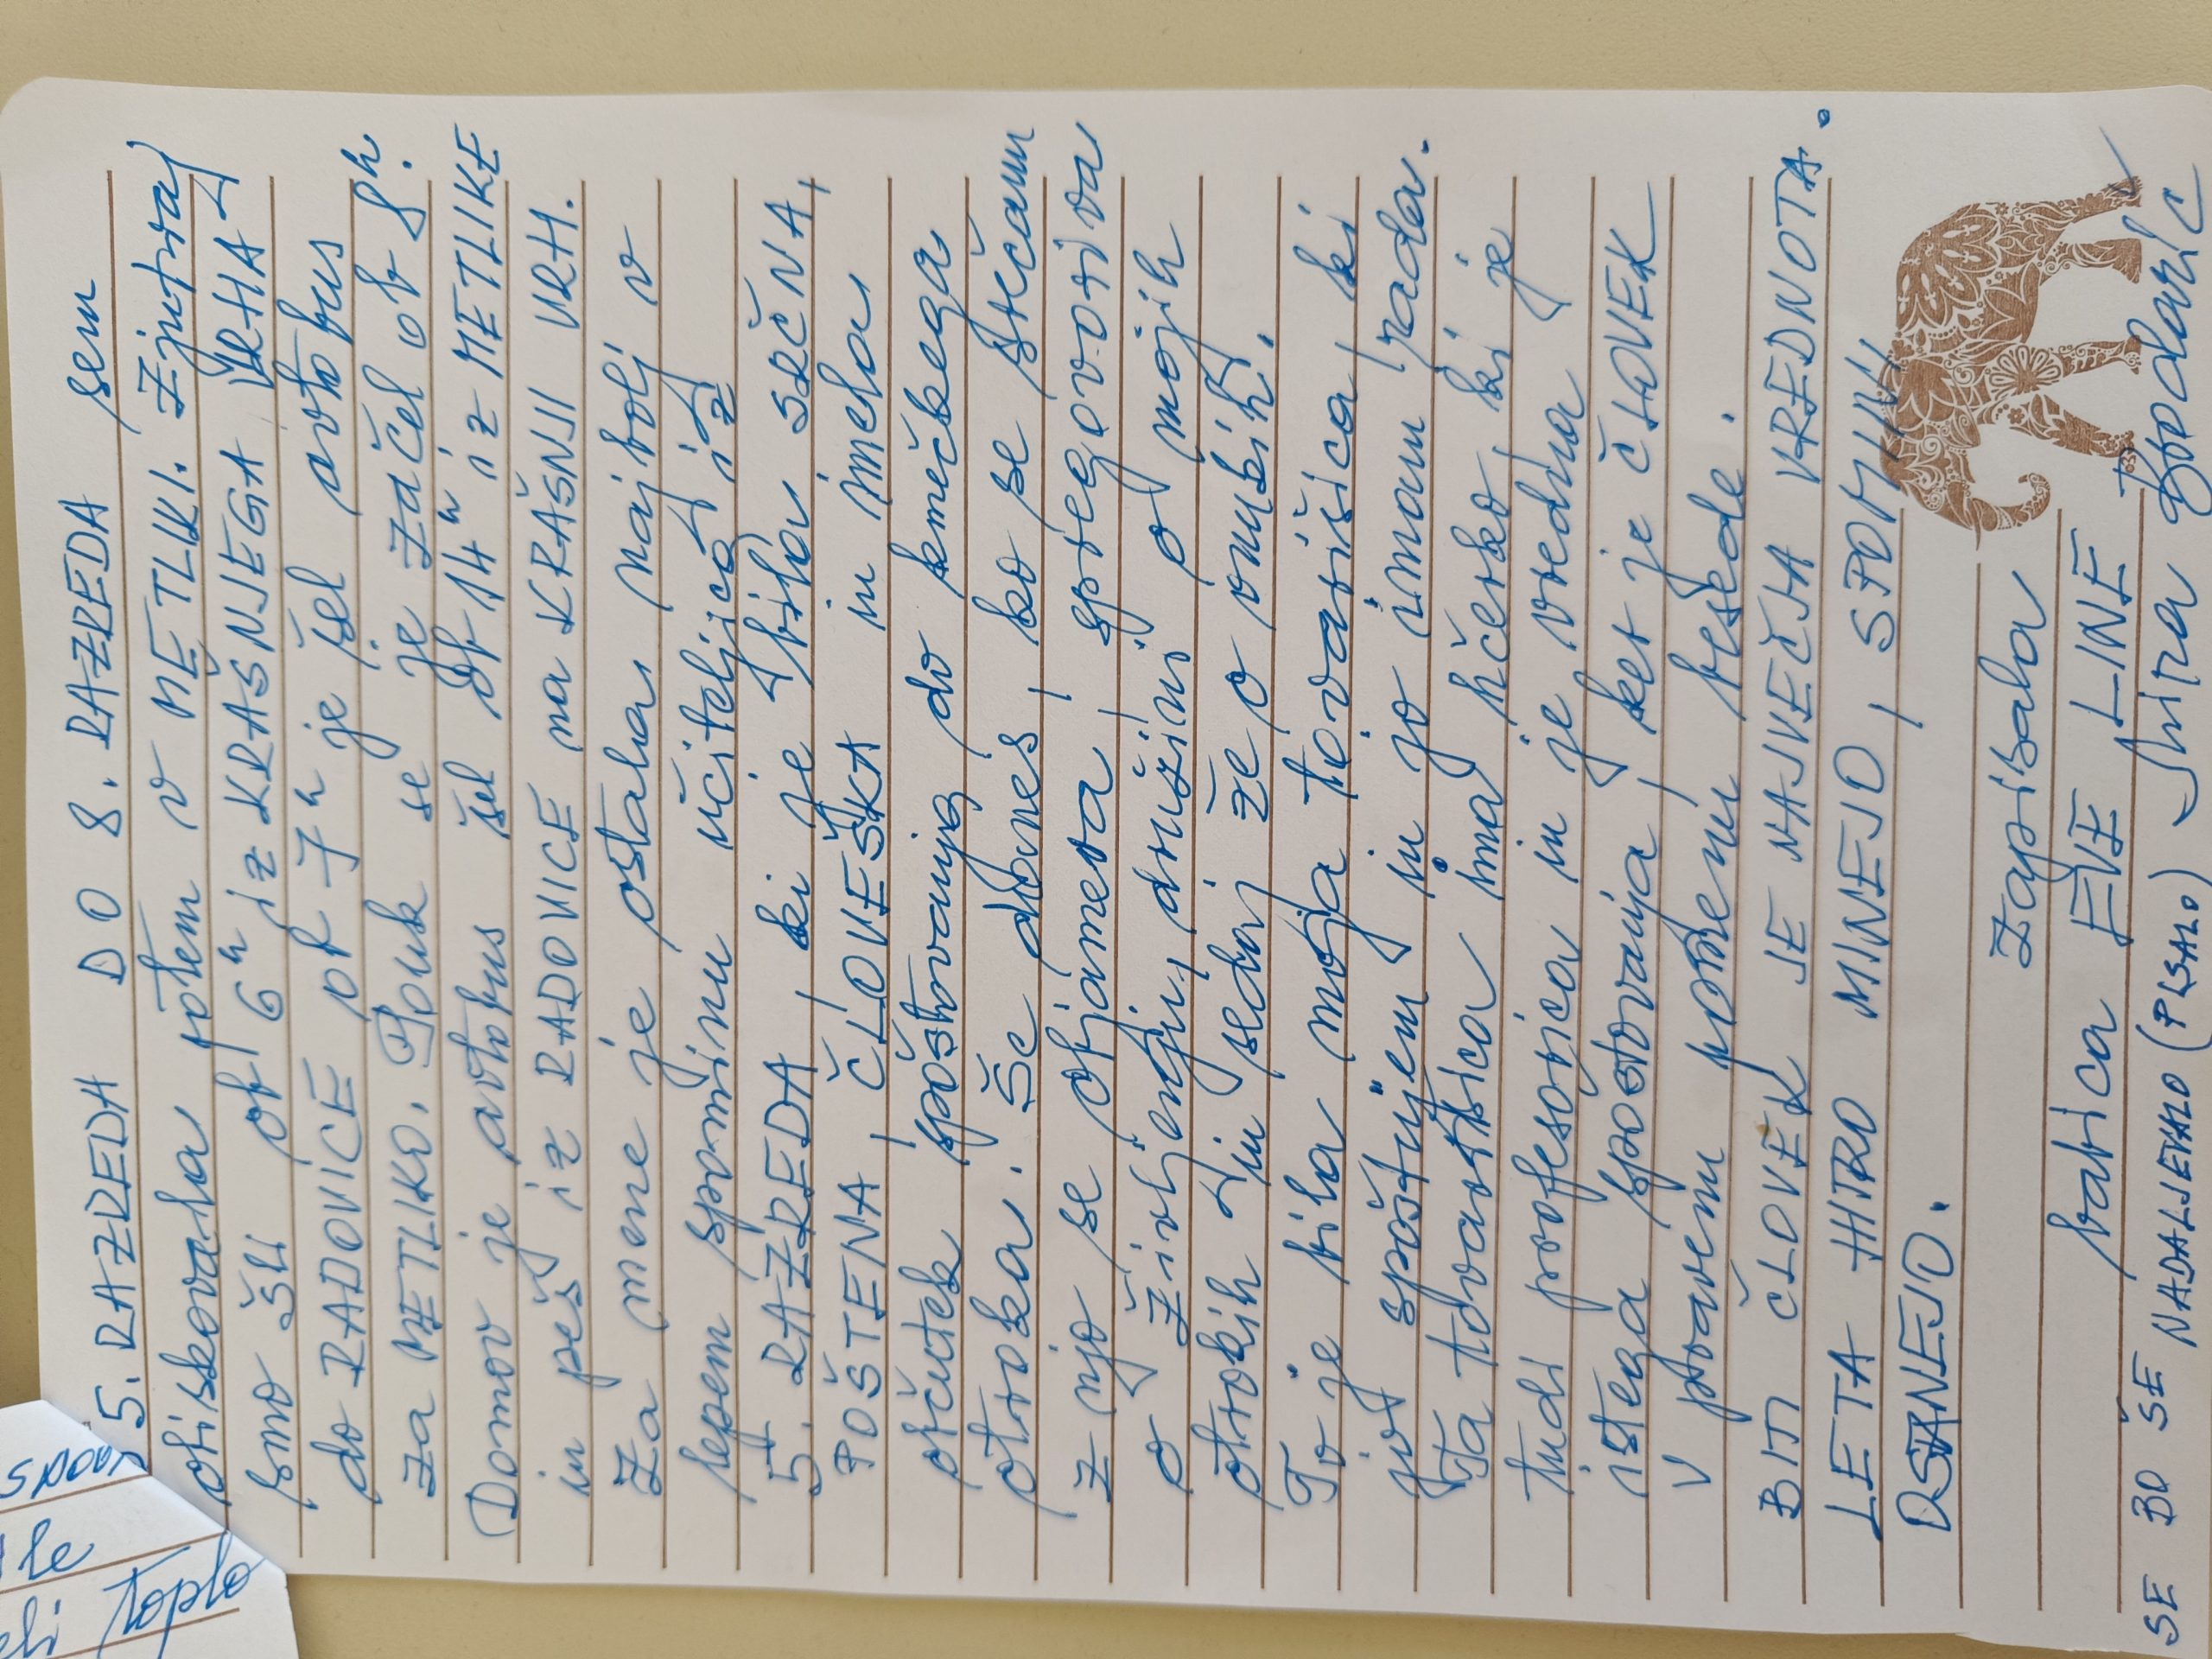 spom
le
eli toplo
5. RAZREDA DO 8. RAZREDA sem
obiskovala potem v METLIKI. Zjutraj
smo šli ob 6h iz KRAŠNJEGA VRHA
do RADOVICE ob 7h je šel avtobus
za METLIKO. Pouk se je začel ob 8h.
Domov je avtobus šel ob 14h iz METLIKE
in peš iz RADOVICE na KRAŠNJI VRH.
Za mene je ostala najbolj v
lepem spominu učiteljica iz
5. RAZREDA, ki je bila SRČNA,
POŠTENA, ČLOVEŠKA in imela
občutek spoštovanja do kmečkega
otroka. Še danes, ko se srečam
z njo se objameva, spregovoriva
o življenju, družini, o mojih
otrokih in sedaj že o vnukih.
To je bila moja tovarišica, ki
jo spoštujem in jo imam rada.
Ta tovarišica ima hčerko, ki je
tudi profesorica in je vredna
istega spostovanja, ker je ČLOVEK
v pravem pomenu besede.
BITI ČLOVEK JE NAJVEČJA VREDNOTA.
LETA HITRO MINEJO, SPOMINI
OSTANEJO.
Zapisala
babica EVE LINE T
SE BO ŠE NADALJEVALO (PISALO) Mira Bodaric